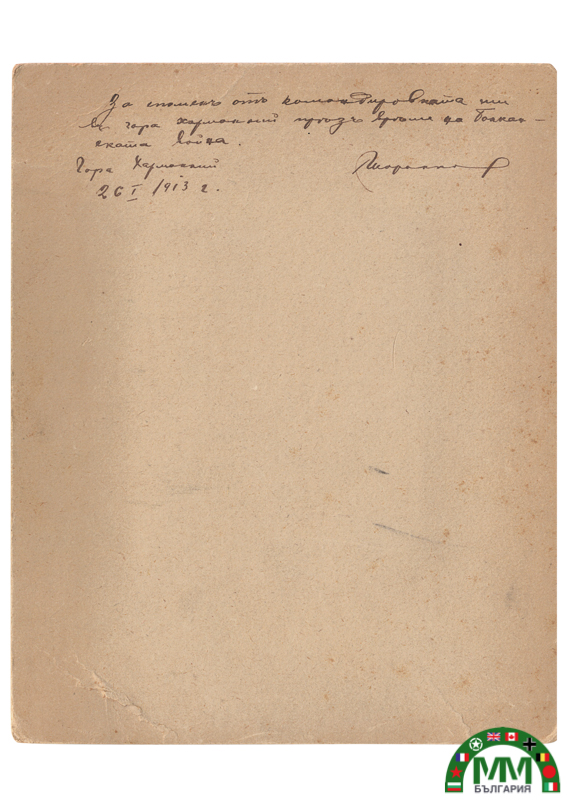 За споменъ отъ командировката ни
въ гора Харманлий презъ време на Балкан-
ската война.
Гора Хармалий
26 I 1913 г.
ММ
БЪЛГАРИЯ